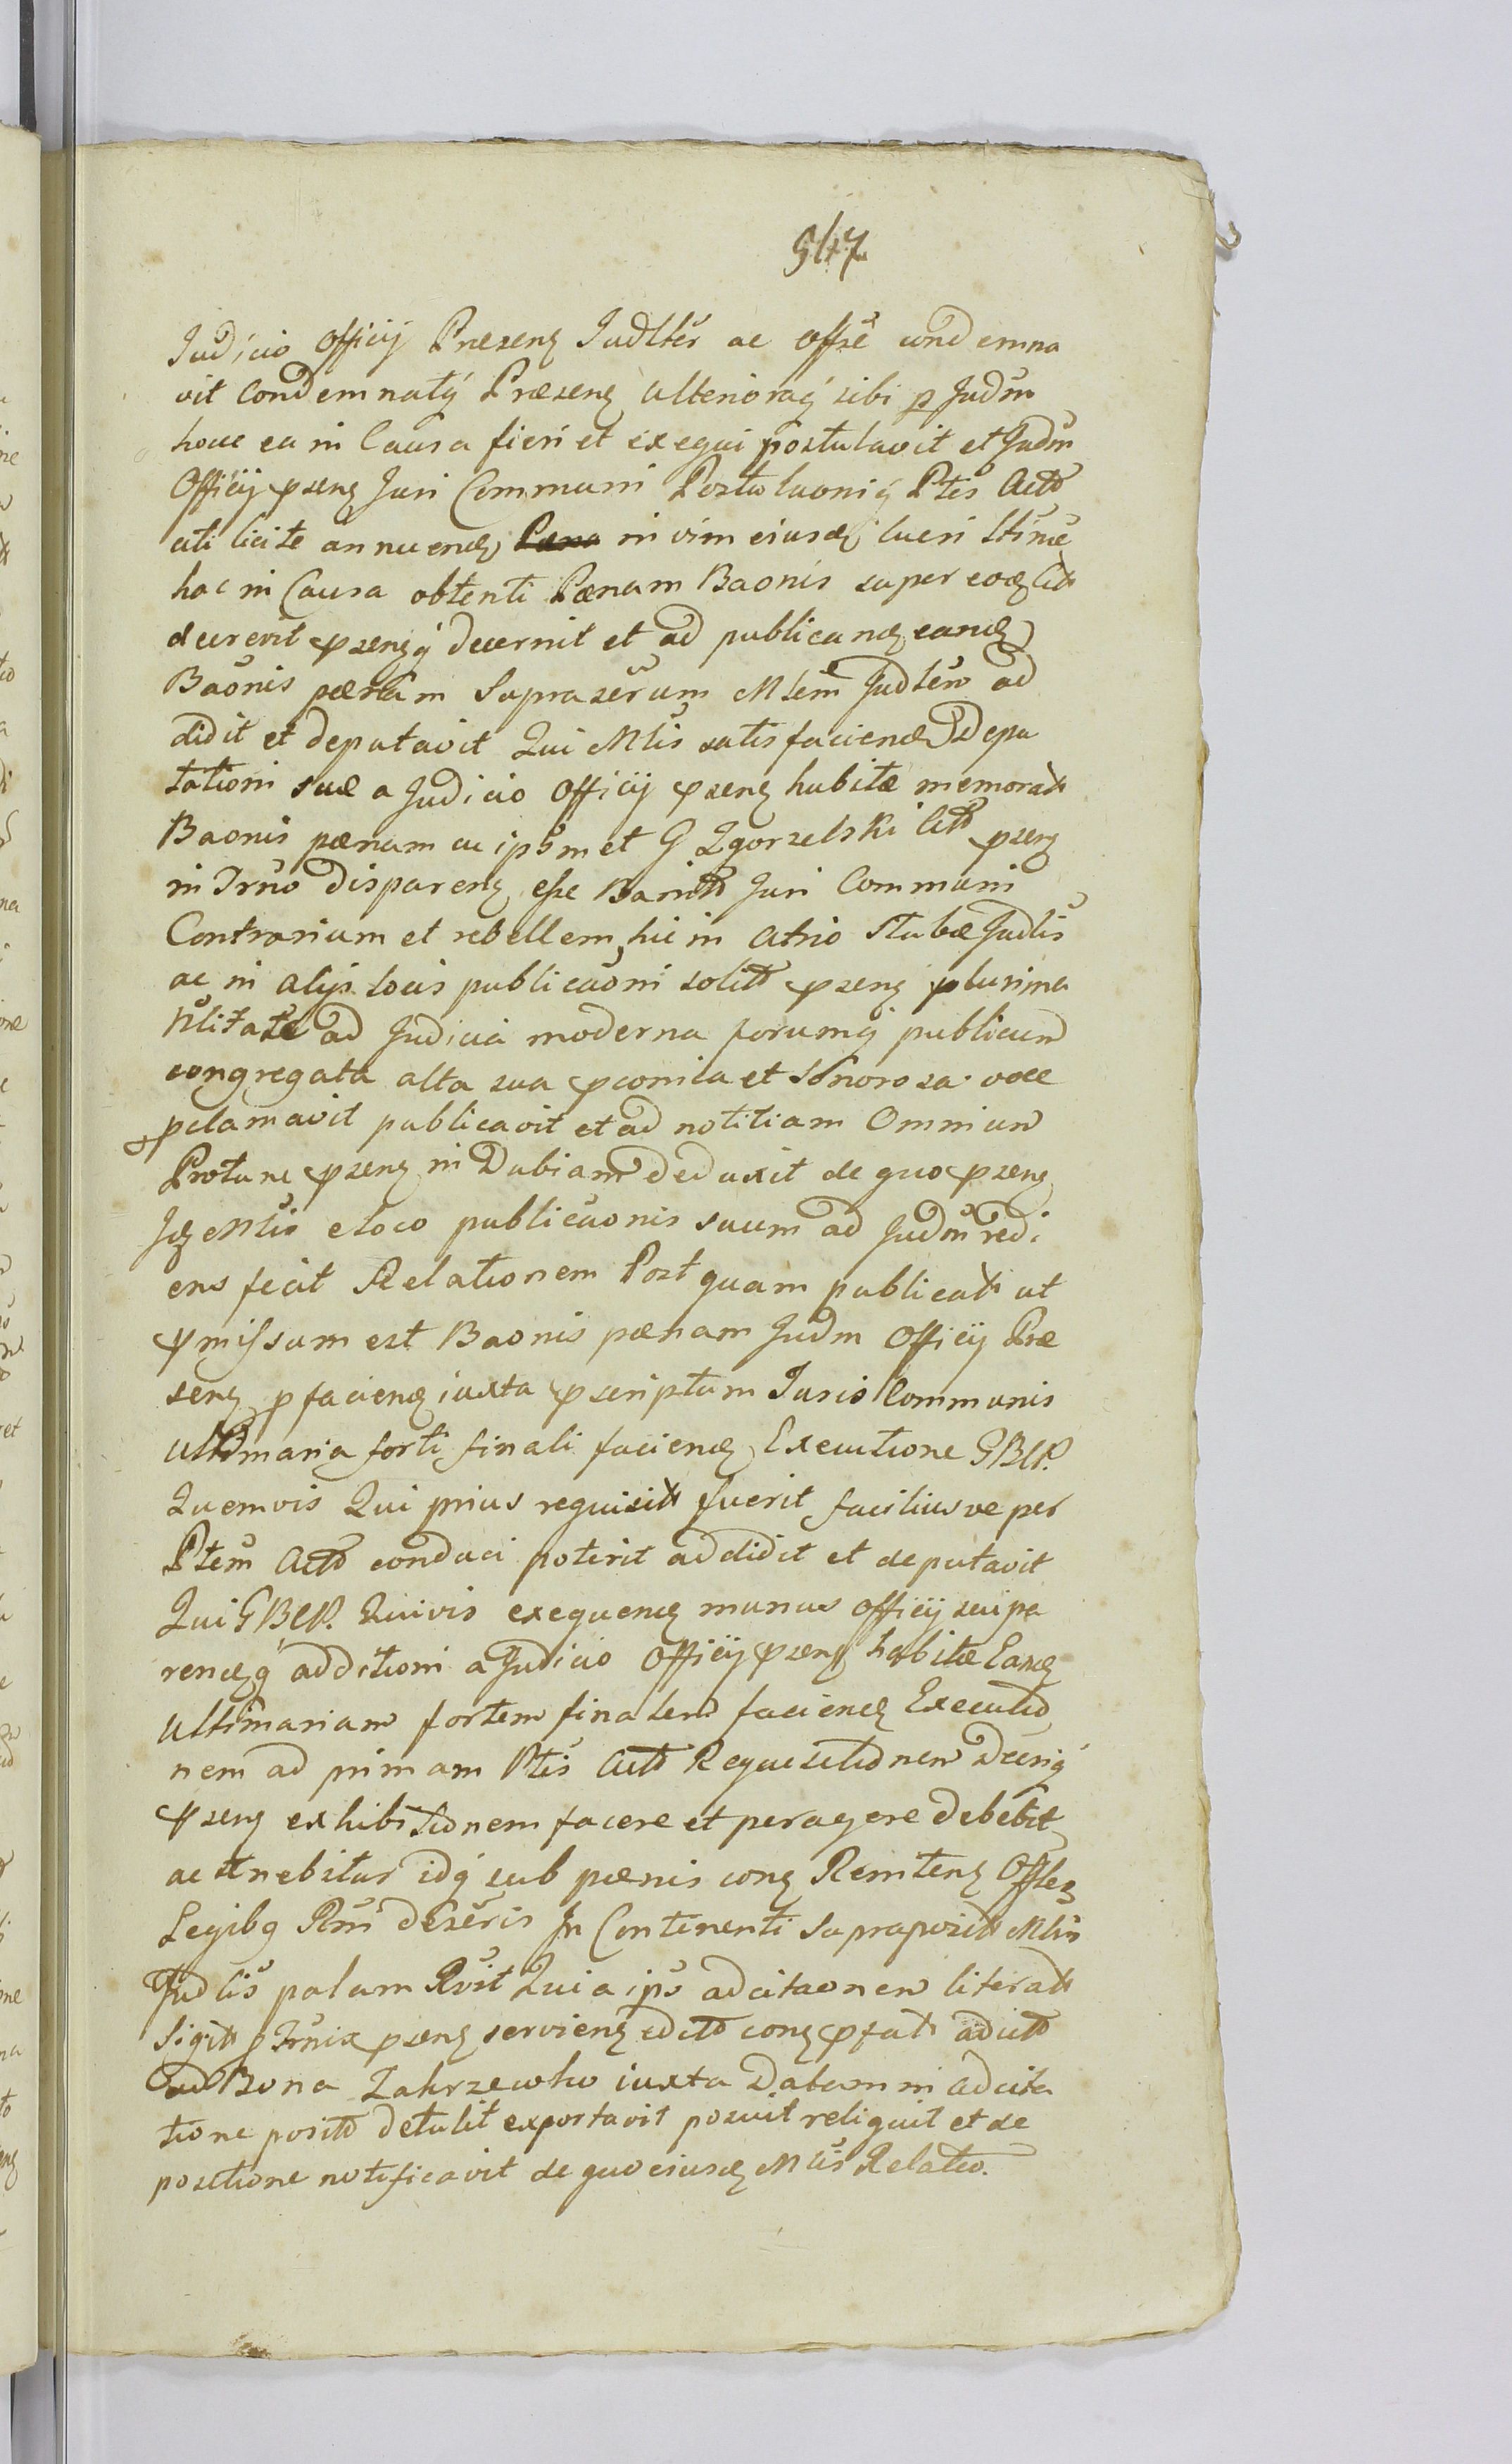 547
Judicio Officij Præsens Judltēr ac offsē condemna
vit Condemnatq́ Præsens Ulterioraq́ sibi p Judm
hocce ea in Causa fieri et exequi postulavit et Judm
Officij pzens Juri Communi Postulaonis Ptis Actō
uti licite annuend in vim eiusd lucri
hac in Causa obtenti Pænam Baonis super eod
decrevit pzensq́ decernit et ad publicand eand
Baonis pænam Suprasērum Mlem Judlem ad
didit et deputavit Qui Mlis satisfaciend Depu
tationi suæ a Judicio Officij pzens habitæ memorat
Baonis pænam ac ipsmet G Zgorzelski Citt pzens
in Trno Disparens esse Banitt Juri Communi
Contrarium et rebellem, hic in Atrio Stubæ Judlis
ac in alijs locis publicaoni solitt pzens plurima
Nlitate ad Judicia moderna forumq́ publicum
congregata alta sua pconica et Sonorosa voce
pclamavit publicavit et ad notitiam Omnium
Protunc pzens in Dubiam deduxit de quo pzens
Id Mlis e loco publicaonis suum ad Judm redi
ens fecit Relationem Postquam publicat ut
pmissum est Baonis pænam Judm Officij Præ
sens p faciend iuxta pscriptum Juris Communis
Ultimaria forti finali faciend Executione GBCR.
Quemvis Qui prius requisitt fuerit faciliusve per
Ptem Actō conduci poterit addidit et deputavit
Qui GBCR. Quivis exequend munus Officij sui pa
rendq́ additioni a Judicio Officij pzens habitæ Eand
Ultimariam fortem finalem faciend Executio
nem ad primam Ptis Actō Requisitionem Decriq́
pzens exhibitionem facere et peragere debebit
ac tenebitur idq́ sub pænis conz Renitenz Offles
Legibq Rni desēris In Continenti Supraposit Mlis
Judlis palam Rvit Quia ips adcitaonem literatt
Sigitt p Trnis pzens serviens editō conz pfat adcitō
ad Bona Zakrzewko iuxta Datam in adcita
tione positō Detulit exportavit posuit reliquit et de
positione notificavit de quo eiusd Mlis Relatio.